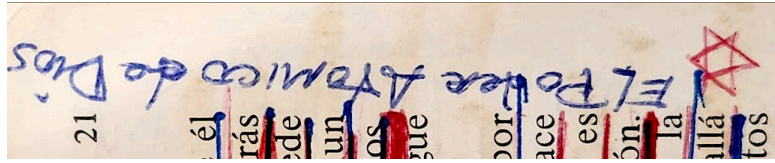 EL PodeR ATOMICO de Dios
21
él
rás
ede
un
os
gue
por
ace
es
ón.
la
allá
tos